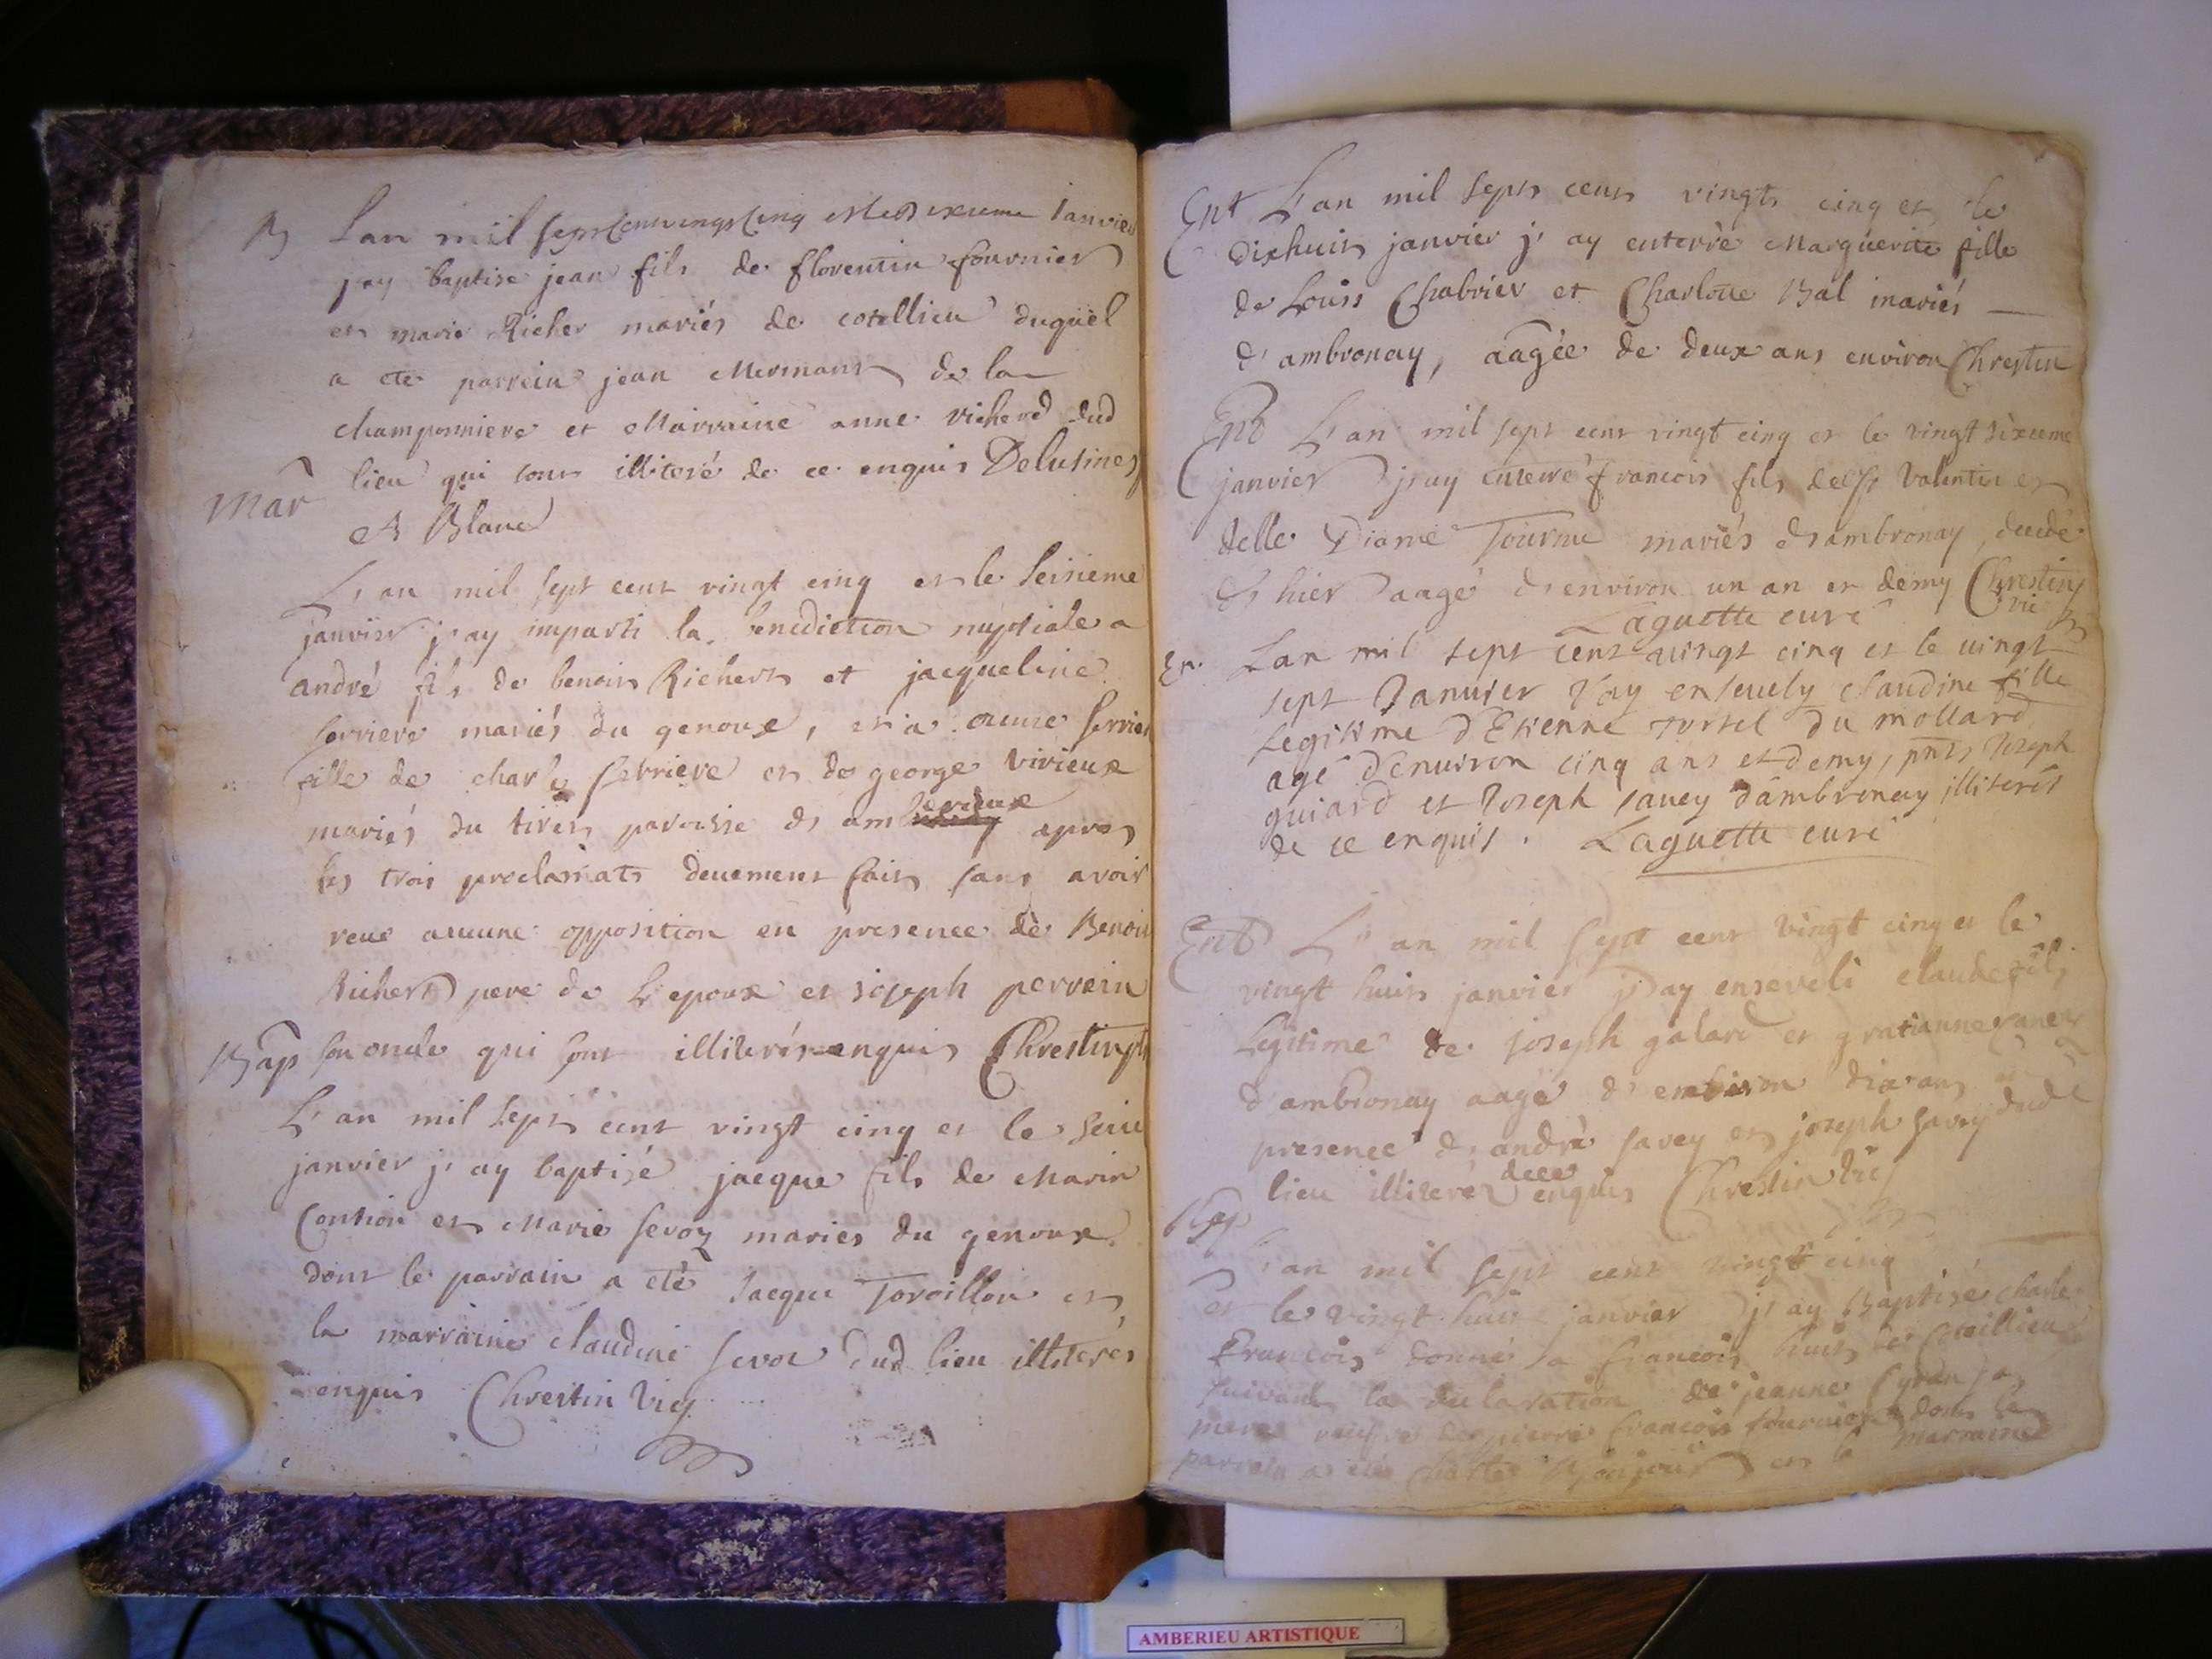 B Lan mil sept cent vingt cinq et le dixieme Janvier
jay baptise jean fils de florentin fournier
et marie Richer mariés de cotellieu duquel
a ete parrein jean Mermant de la
championniere et Marraine anne richerd dud
lieu qui sont illiteré de ce enquis Delusines
Mar
et Blanc
L'an mil sept cent vingt cinq et le seizieme
janvier j'ay imparti la benediction nuptiale a
andré fils de benoit Richert et jacqueline
serriere mariés du genoux, et a serriere
fille de charle serriere et de george vivieux
mariés du tiret paroisse d'am berieux apres
les trois proclamats deuement faits sans avoir
reüe aucune opposition en presence de Benoit
Richerd pere de L'epoux et joseph perrein
Bap son oncle qui sont illiterés enquis Chrestin
L'an mil sept cent vingt cinq et le seize
janvier j'ay baptisé jacque fils de Marin
Conthion et Marie sevoz mariés du genoux
dont le parrain a eté Jacque Tovoillon et
la marraine claudine sevoz dud lieu illiterés
enquis Chrestin vic
Ent L'an mil sept cent vingt cinq et le
dixhuit janvier j'ay enterré Marguerite fille
de Louis Chabrier et Charlotte Bal mariés
d'ambronay, aagée de deux ans environ Chrestin
Ent L'an mil sept cent vingt cinq et le vingt sixieme
janvier j'ay enterré francois fils de Sr Valentin et
delle Diane Tourme mariés d'ambronay, decedé
d'hier aagé d'environ un an et demy Chrestin
vic
Laguette curé
En. Lan mil sept cent vingt cinq et le vingt
sept Januier J'ay enseuely claudine fille
Legitime d'Etienne Jussel du mollard
agé d'enuiron cinq ans et demy, pnts Joseph
guiard et Joseph sauey d'ambronay illiterés
de ce enquis. Laguette curé
Ent L'an mil sept cent vingt cinq et le
vingt huit janvier j'ay enseveli claude fils
Legitime de joseph galard et gratianne
d'ambronay aagé d'environ dix ans
presence d'andré savey et joseph savey dud
lieu illiterés dece enquis Chrestin vic
Bap
L'an mil sept cent vingt cinq
et le vingt huit janvier j'ay Baptisé charle
Francois donné a francois huit de Cotellieu
suivant la declaration de jeanne sa
mere veufve de pierre francois fournier dont le
parrain a eté charle et la marraine
AMBERIEU ARTISTIQUE